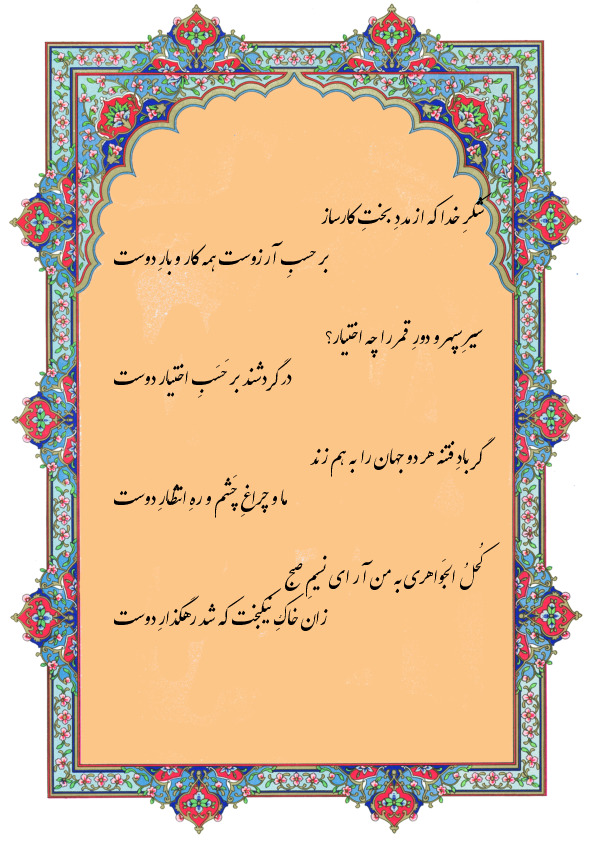 شکرِ خدا که از مددِ بختِ کارساز
بر حسبِ آرزوست همه کار و بارِ دوست
سیرِ سپهر و دورِ قمر را چه اختیار؟
در گردشند بر حَسَبِ اختیار دوست
گر بادِ فتنه هر دو جهان را به هم زند
ما و چراغِ چَشم و رهِ انتظارِ دوست
کُحلُ الجَواهری به من آر ای نسیمِ صبح
زان خاکِ نیکبخت که شد رهگذارِ دوست